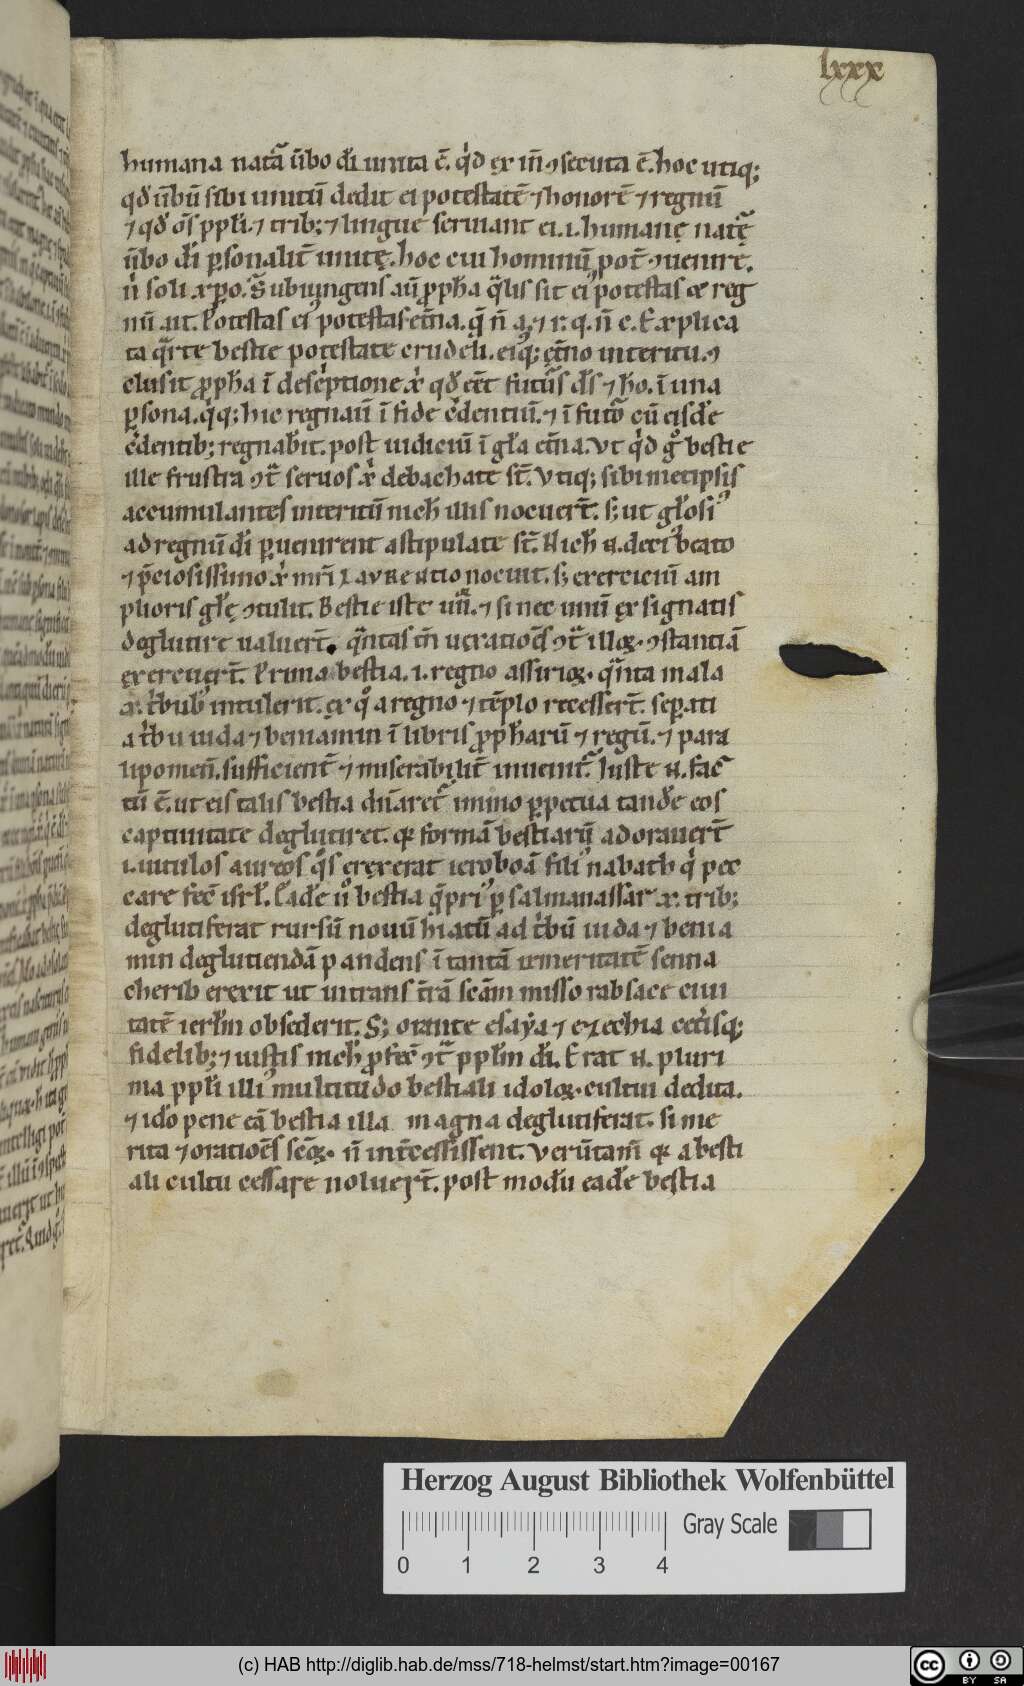 lxxx
humana natã ũbo dı̄ unita ē. q̇d ex iñ ꝯsecuta ē. hoc utiq;
qđ ũbũ sibi unitũ dedit ei potestatē ⁊ honorē ⁊ regnũ
⁊ qđ om̄s ppłi. ⁊ trib; ⁊ lingue seruiant ei. i. humanę natę̃
ũbo dı̄ ꝑsonalit̃ unitę. hoc cui hominũ pot̃ ꝯuenire.
n̄ soli xp̄o. Subiungens aũ ꝓpħa q̃lis sit ei᾽ potestas ⁊ reg
nũ ait. Potestas ei᾽ potestas et̃na. q̨ n̄ a. ⁊ r. q. n̄ c. Explica
ta q̃rte bestie potestate crudeli. eiꝗ; ęt̃no interitu. ꝯ
clusit ꝓpħa ı̄ desc̓ptione xp̄i qđ eẽt futũs dı̄s ⁊ ħo. ı̄ una
ꝑsona. q̇q; hic regnaũ ı̄ fide c̓dentiũ. ⁊ ı̄ futõ cũ eisdē
c̓dentib; regnabit. post iudiciũ ı̄ gła et̃na. Vt q̇d g̊ bestie
ille frustra ꝯt̃ seruos xp̄i debachate st̃. Vtiq; sibimetipsis
accumulantes interitũ nich̓ illis nocuert̃. s; ut głosi᾽
ad regnũ dı̄ ꝑuenirent astipulate st̃. Nich̓ N. deci᾽ beato
⁊ p̃ciosissimo xp̄i mr̄i LAVRENtio nocuit. s; exerciciũ am
plioris głę ꝯtulit. Bestie iste uñ. ⁊ si nec unũ ex signatis
deglutire ualuert̃. q̃ntas tñ ueratioēs ꝯt̃ illoꝝ ꝯstantiã
exercuert̃. Prima bestia. i. regno assirioꝝ. q̃nta mala
x. t̓bub᾽ intulerit. ex q̊ a regno ⁊ tēplo recessert̃. sepati
a t̓bu iuda ⁊ beniamin ı̄ libris ꝓpħarũ ⁊ regũ. ⁊ para
lipomeñ. sufficient̃ ⁊ miserabilit̃ inuenit̃. Iuste N. fac̃
tũ ē. ut eis talis bestia dñaret̃ immo ꝑpetua tandē eos
captiuitate deglutiret. qꝛ formã bestiarũ adorauert̃
i. uitulos aureos q̊s erexerat ieroboã fili᾽ nabath q̇ pec
care fec̃ isrł. Eadē u̓ bestia q̃ pri᾽ ꝑ salmanassar x. trib;
deglutiferat rursũ nouũ hiatũ ad t̓bũ iuda ⁊ benia
min deglutiendã pandens ı̄ tantã temeritatē senna
cherib erexit ut intrans t̃rã scãm misso rabsace ciui
tatē ierłm obsederit. S; orante esaẏa ⁊ ezechia cet̓isq;
fidelib; ⁊ iustis nich̓ ꝓfec̃ ꝯt̃ ppłm dı̄. Erat N. pluri
ma ppłi illi᾽ multitudo bestiali idoloꝝ cultui dedita.
⁊ idō pene eã bestia illa magna deglutiferat. si me
rita ⁊ oratioēs sc̃oꝝ n̄ int̃cessissent. Verũtam̄ qꝛ a besti
ali cultu cessare noluert̃. post modũ eadē bestia
Herzog August Bibliothek Wolfenbüttel
Gray Scale
0 1 2 3 4
(c) HAB http://diglib.hab.de/mss/718-helmst/start.htm?image=00167
cc BY SA